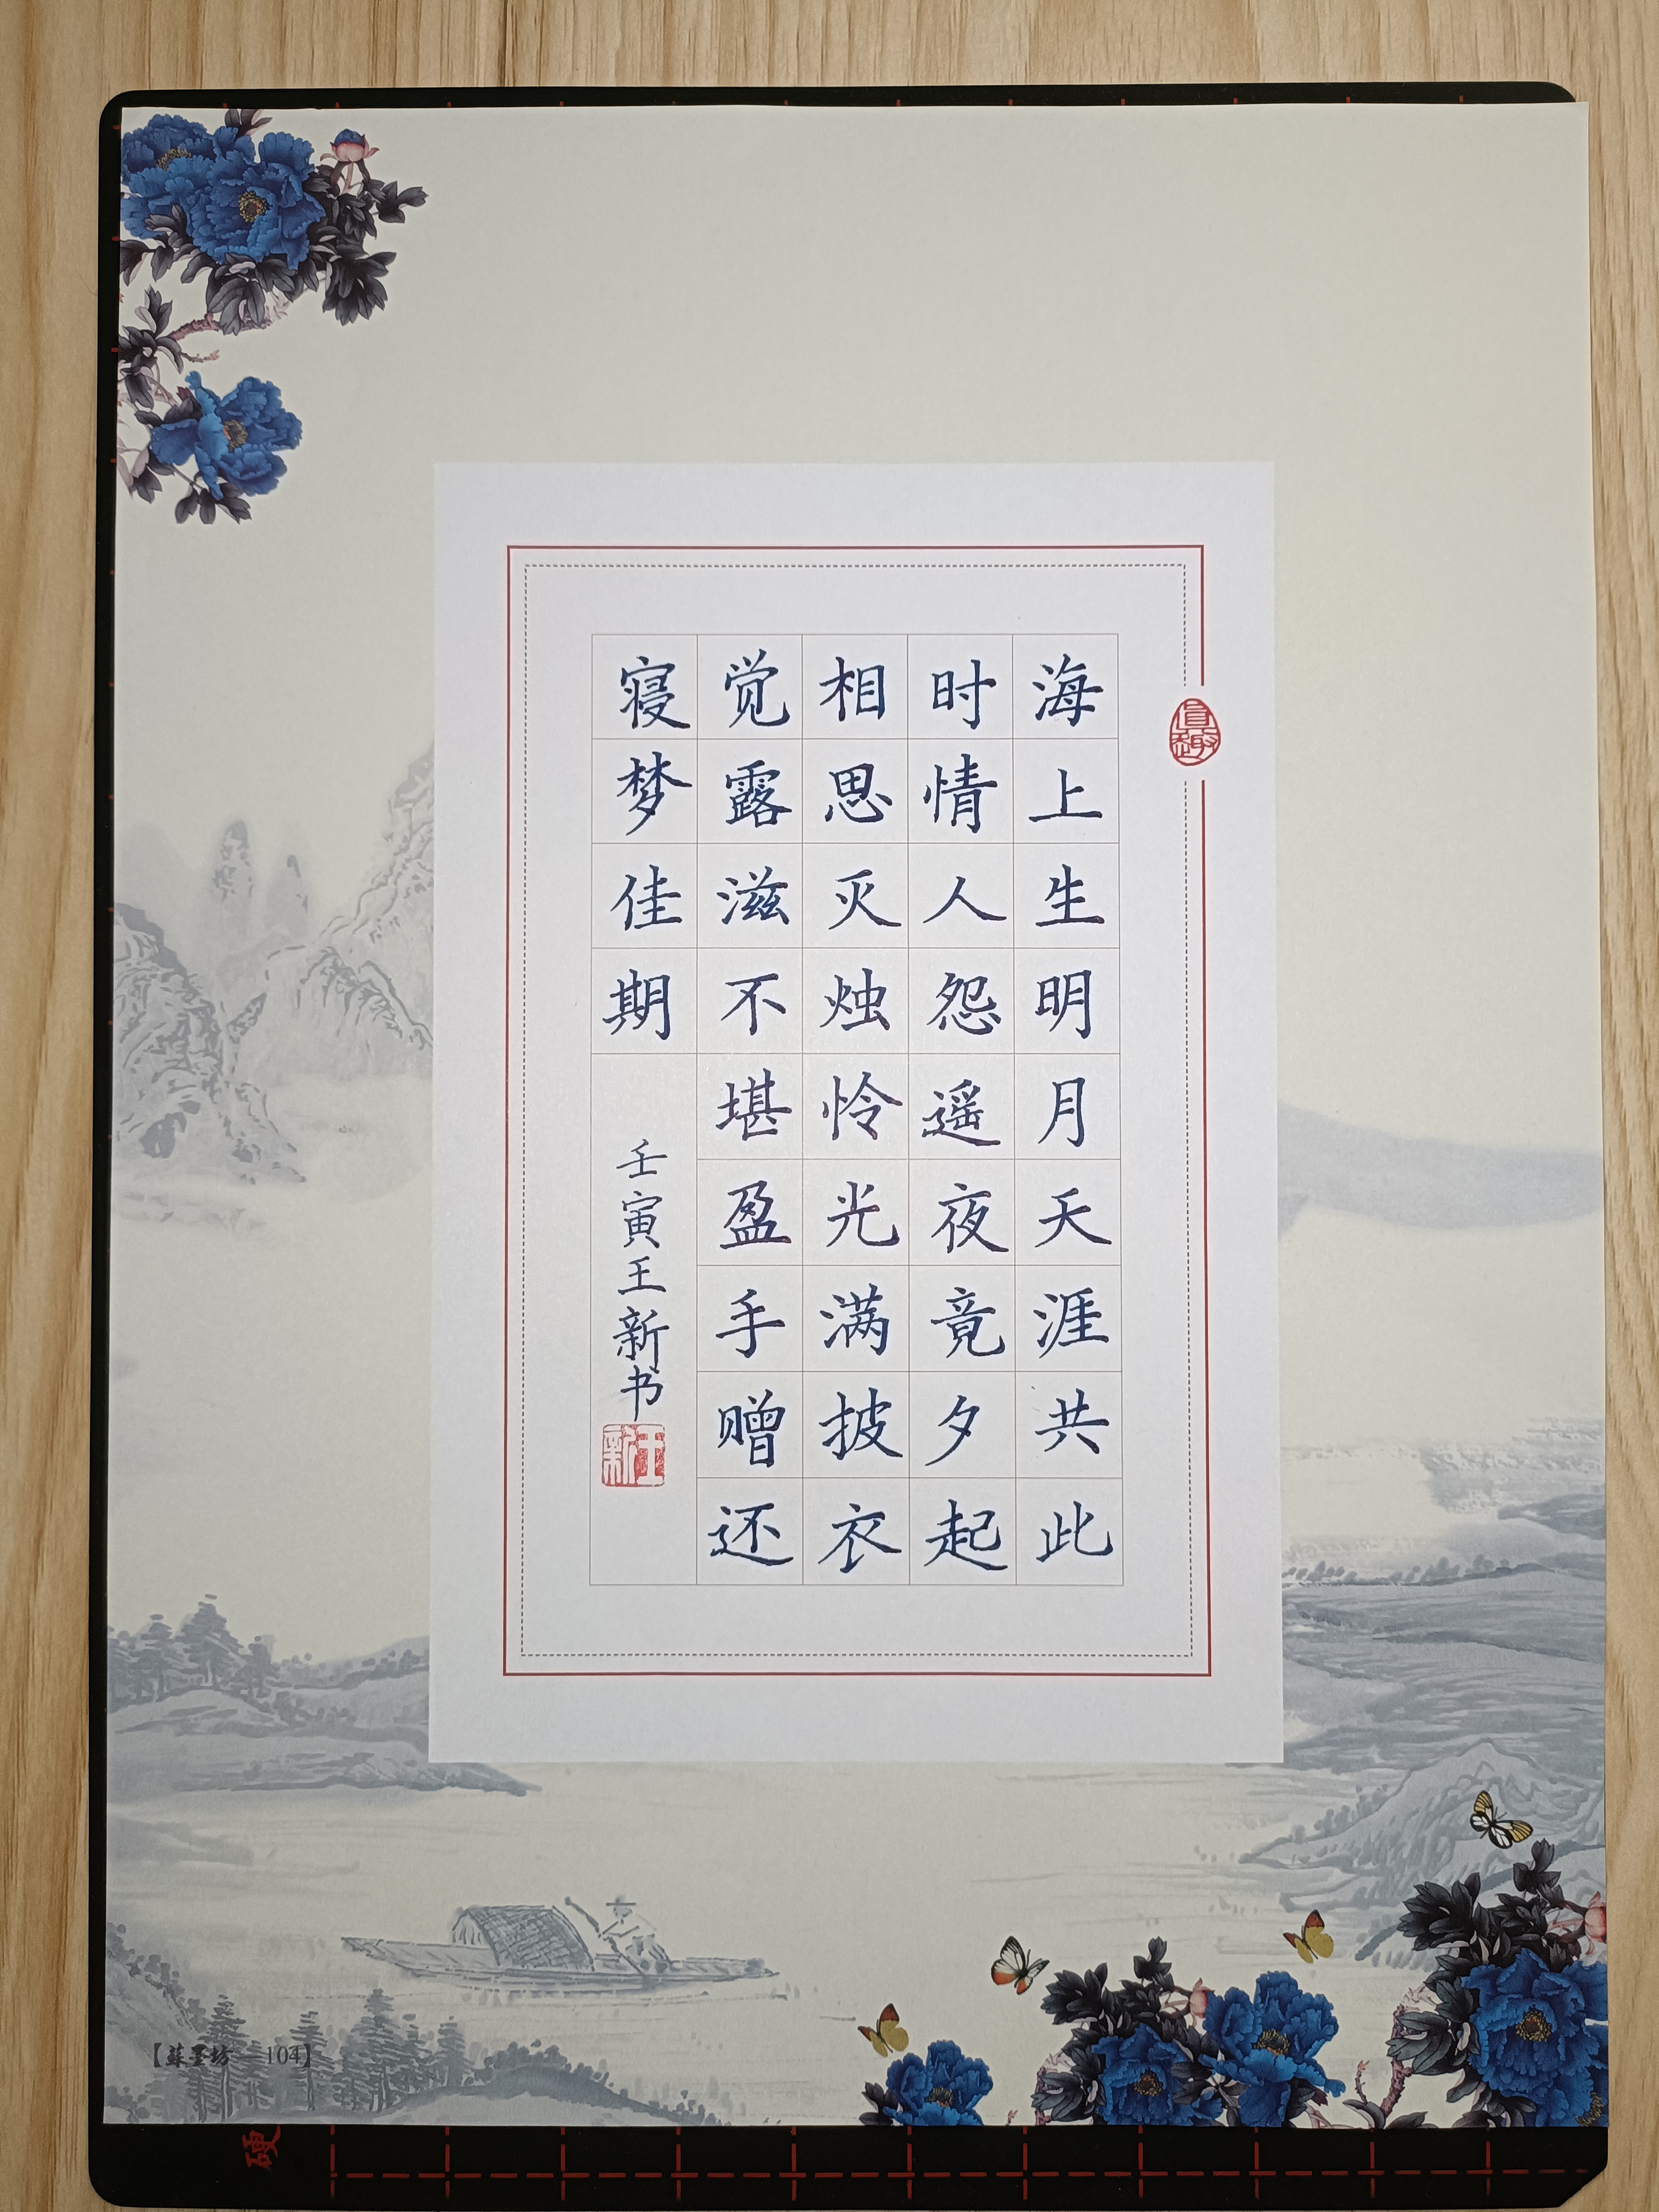 海上生明月天涯共此
时情人怨遥夜竟夕起
相思灭烛怜光满披衣
觉露滋不堪盈手赠还
寝梦佳期
壬寅王新书
王新
真趣
【苏墨坊—104】
硬